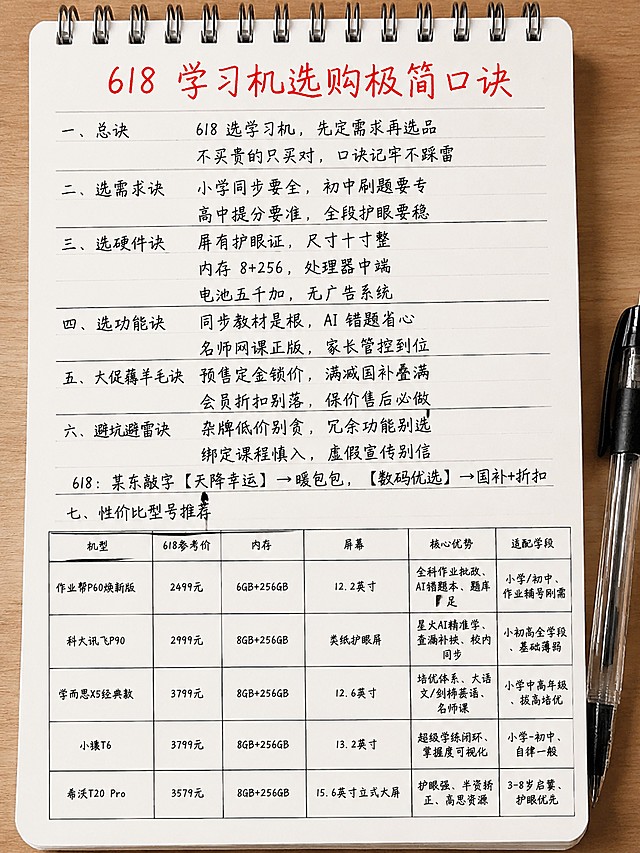 618 学习机选购极简口诀
一、总诀 618 选学习机，先定需求再选品
不买贵的只买对，口诀记牢不踩雷
二、选需求诀 小学同步要全，初中刷题要专
高中提分要准，全段护眼要稳
三、选硬件诀 屏有护眼证，尺寸十寸整
内存 8+256，处理器中端
电池五千加，无广告系统
四、选功能诀 同步教材是根，AI 错题省心
名师网课正版，家长管控到位
五、大促薅羊毛诀 预售定金锁价，满减国补叠满
会员折扣别落，保价售后必做
六、避坑避雷诀 杂牌低价别贪，冗余功能别选
绑定课程慎入，虚假宣传别信
618：某东敲字【天降幸运】→暖包包，【数码优选】→国补+折扣
七、性价比型号推荐
机型 618参考价 内存 屏幕 核心优势 适配学段
作业帮P60焕新版 2499元 6GB+256GB 12.2英寸 全科作业批改、AI错题本、题库足 小学/初中、作业辅导刚需
科大讯飞P90 2999元 8GB+256GB 类纸护眼屏 星火AI精准学、查漏补缺、校内同步 小初高全学段、基础薄弱
学而思X5经典款 3799元 8GB+256GB 12.6英寸 培优体系、大语文/剑桥英语、名师课 小学中高年级、拔高培优
小猿T6 3799元 8GB+256GB 13.2英寸 超级学练闭环、掌握度可视化 小学-初中、自律一般
希沃T20 Pro 3579元 8GB+256GB 15.6英寸立式大屏 护眼强、半资矫正、高思资源 3-8岁启蒙、护眼优先